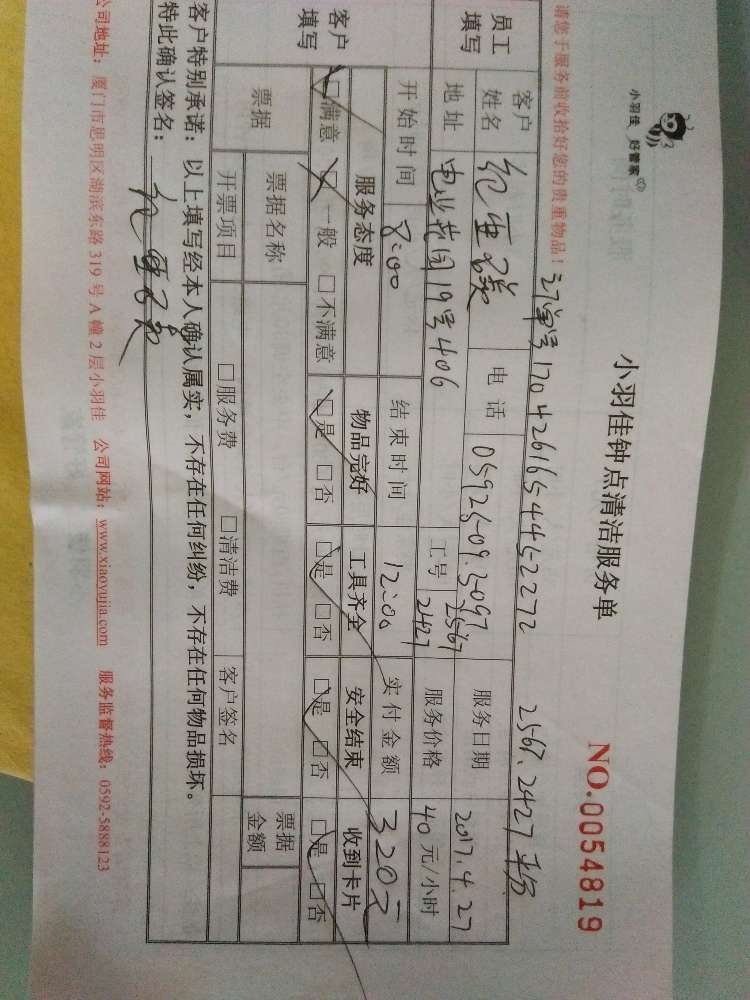 小羽佳 好管家
小羽佳钟点清洁服务单
NO.0054819
订单号 17042616544452272 2567.2427平分
请您于服务前收拾好您的贵重物品！
员工填写 客户姓名 电话 05925093097 服务日期 2017.4.27
地址 电业花园19号406 工号 2567 2427 服务价格 40元/小时
客户填写 开始时间 8:00 结束时间 12:00 实付金额 320元
服务态度 物品完好 工具齐全 安全结束 收到卡片
□满意 □一般 □不满意 □是 □否 □是 □否 □是 □否 □是 □否
票据 票据名称 票据金额
开票项目 □服务费 □清洁费 客户签名
客户特别承诺：以上填写经本人确认属实，不存在任何纠纷，不存在任何物品损坏。
特此确认签名：
公司地址：厦门市思明区湖滨东路319号A幢2层小羽佳 公司网站：www.xiaoyujia.com 服务监督热线：0592-5888123